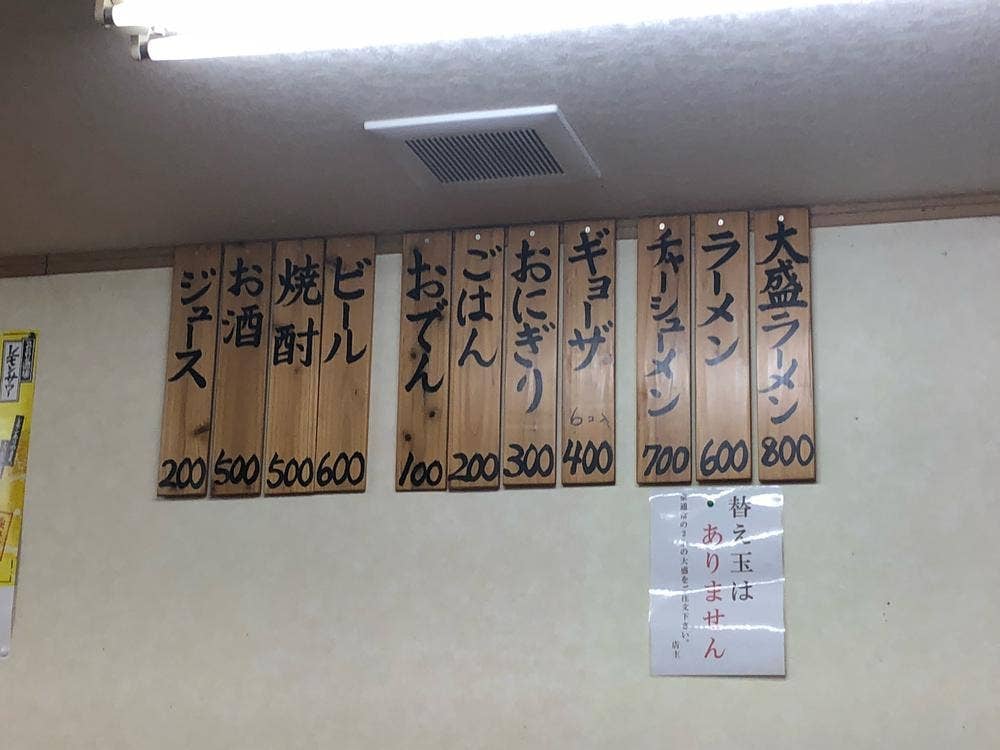 大盛ラーメン 800
ラーメン 600
チャーシューメン 700
ギョーザ 6コ入 400
おにぎり 300
ごはん 200
おでん 100
ビール 600
焼酎 500
お酒 500
ジュース 200
替え玉は
ありません
の大盛をご注文下さい。
店主